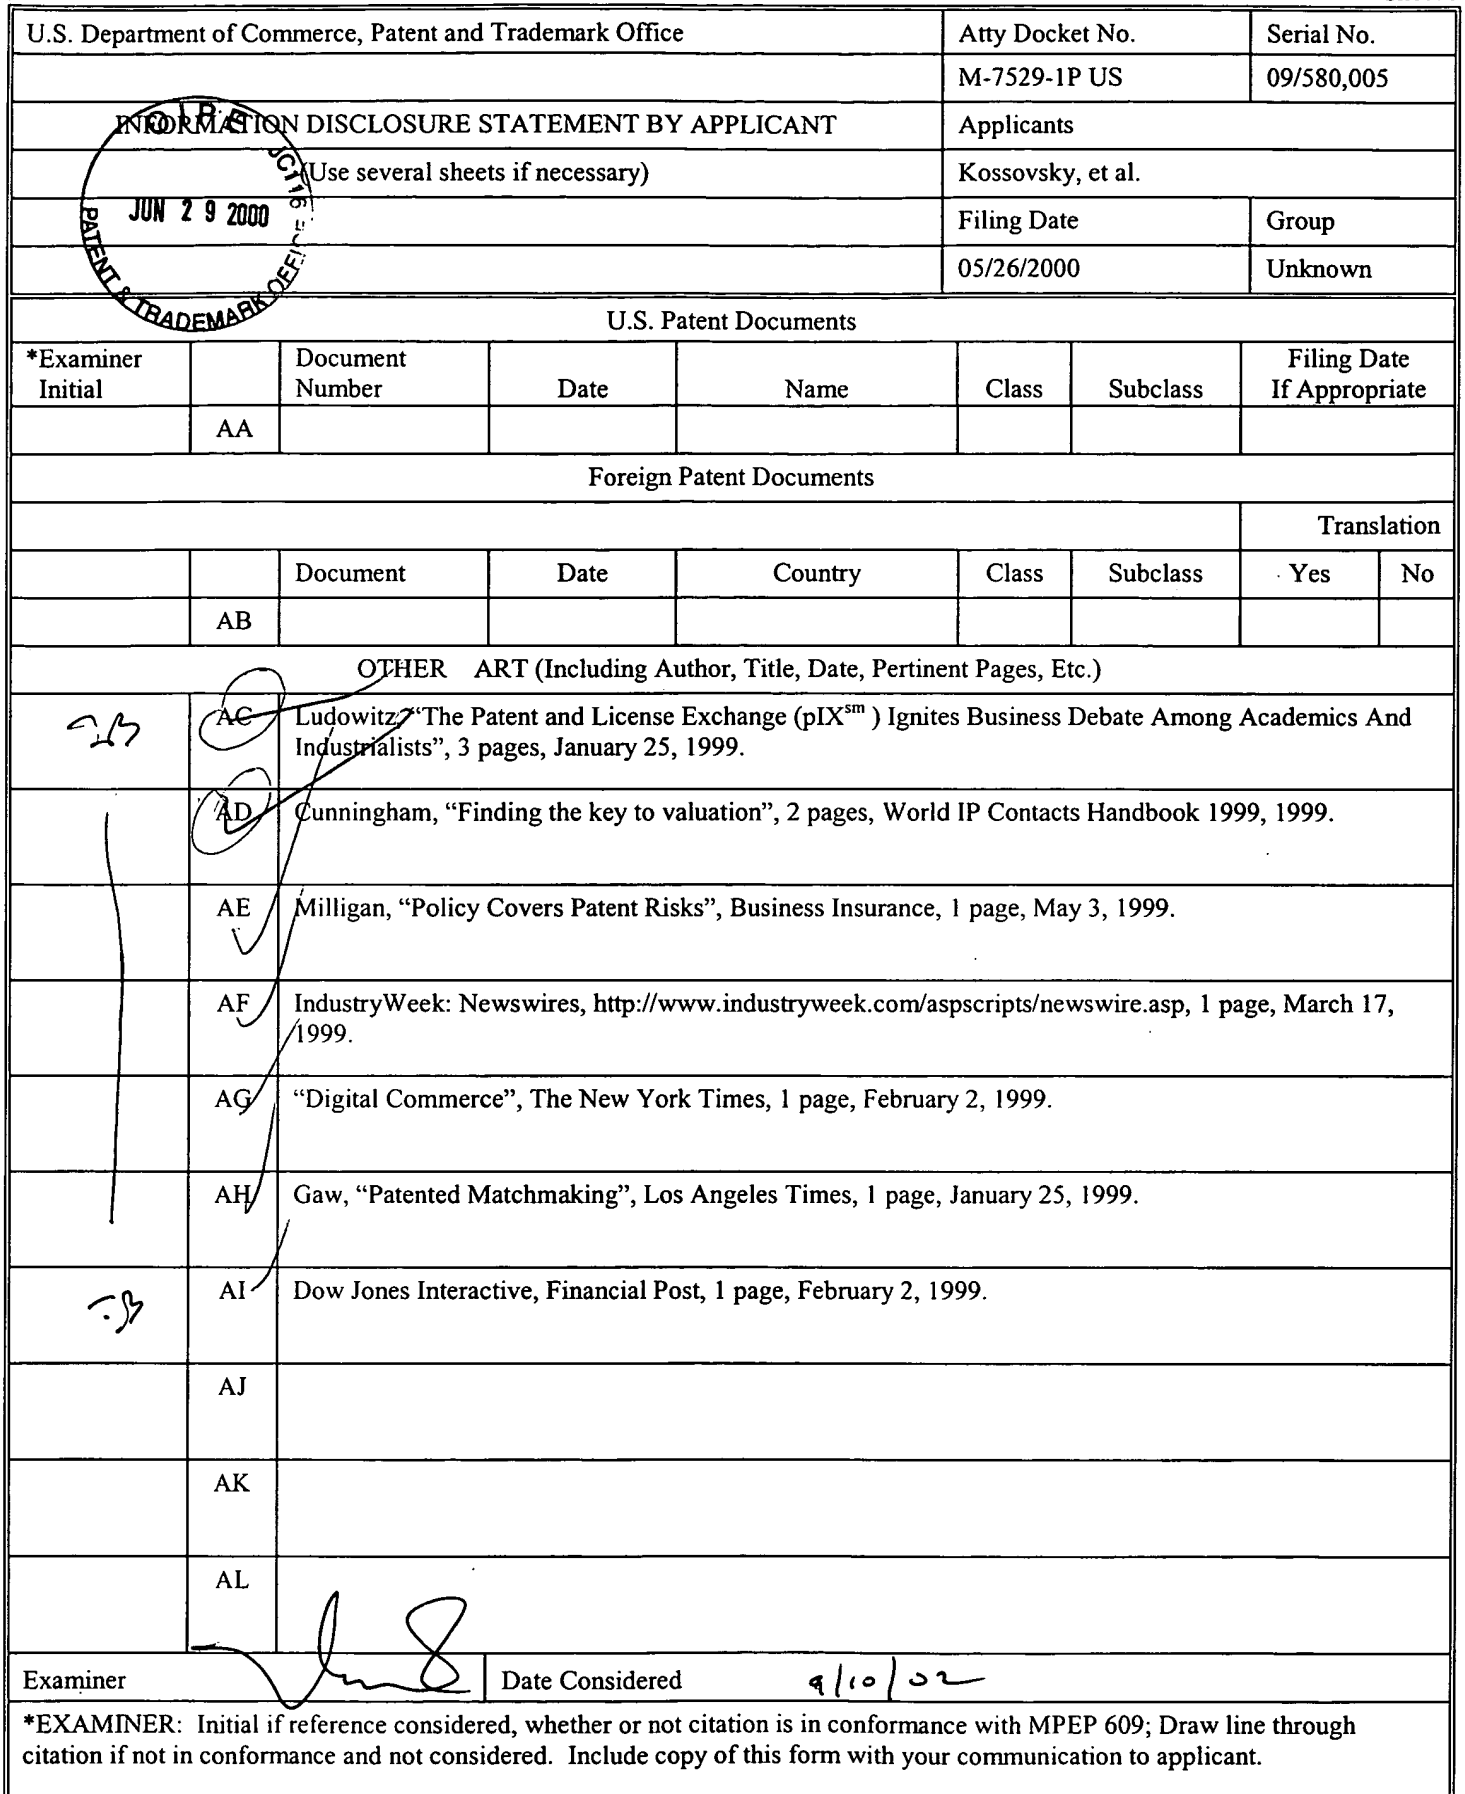 U.S. Department of Commerce, Patent and Trademark Office Atty Docket No. Serial No.
M-7529-1P US 09/580,005
INFORMATION DISCLOSURE STATEMENT BY APPLICANT Applicants
(Use several sheets if necessary) Kossovsky, et al.
Filing Date Group
05/26/2000 Unknown
O I P E JC116
JUN 29 2000
PATENT & TRADEMARK OFFICE
U.S. Patent Documents
*Examiner Document Filing Date
Initial Number Date Name Class Subclass If Appropriate
AA
Foreign Patent Documents
Translation
Document Date Country Class Subclass Yes No
AB
OTHER ART (Including Author, Title, Date, Pertinent Pages, Etc.)
AC Ludowitz, “The Patent and License Exchange (pIX^sm ) Ignites Business Debate Among Academics And
Industrialists”, 3 pages, January 25, 1999.
AD Cunningham, “Finding the key to valuation”, 2 pages, World IP Contacts Handbook 1999, 1999.
AE Milligan, “Policy Covers Patent Risks”, Business Insurance, 1 page, May 3, 1999.
AF IndustryWeek: Newswires, http://www.industryweek.com/aspscripts/newswire.asp, 1 page, March 17,
1999.
AG “Digital Commerce”, The New York Times, 1 page, February 2, 1999.
AH Gaw, “Patented Matchmaking”, Los Angeles Times, 1 page, January 25, 1999.
AI Dow Jones Interactive, Financial Post, 1 page, February 2, 1999.
AJ
AK
AL
Examiner Date Considered 9/10/02
*EXAMINER: Initial if reference considered, whether or not citation is in conformance with MPEP 609; Draw line through
citation if not in conformance and not considered. Include copy of this form with your communication to applicant.